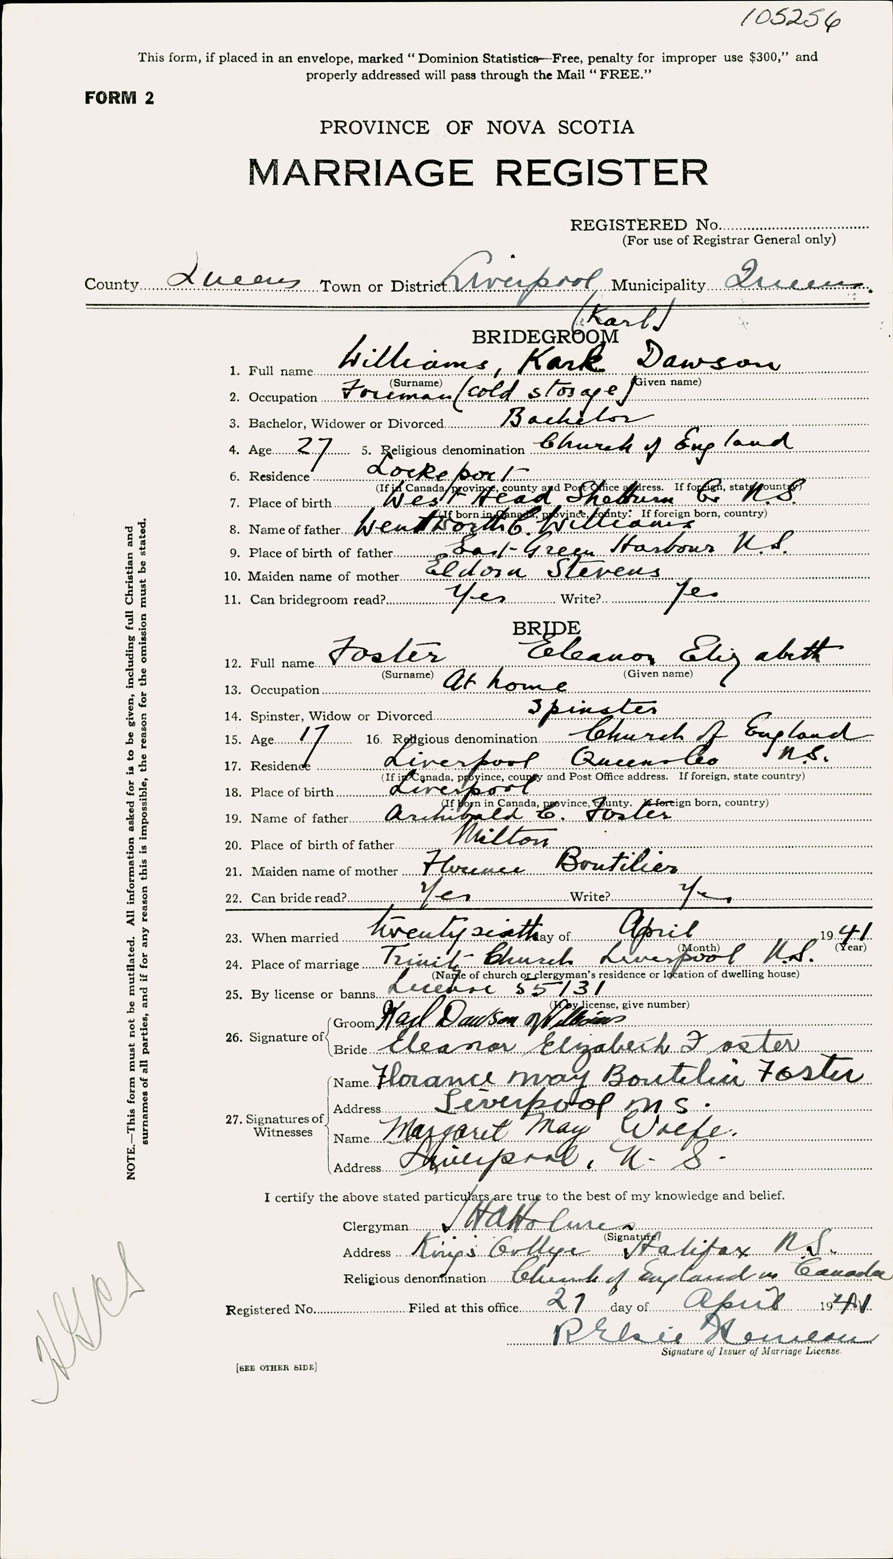 105256
This form, if placed in an envelope, marked “ Dominion Statistics—Free, penalty for improper use $300,” and
properly addressed will pass through the Mail “ FREE.”
FORM 2
PROVINCE OF NOVA SCOTIA
MARRIAGE REGISTER
REGISTERED No.
(For use of Registrar General only)
County Queens Town or District Liverpool Municipality Queens.
(Karl)
BRIDEGROOM
1. Full name Williams, Kark Dawson
(Surname) (Given name)
2. Occupation Foreman (cold storage)
3. Bachelor, Widower or Divorced Bachelor
4. Age 27 5. Religious denomination Church of England
6. Residence Lockeport
(If in Canada, province, county and Post Office address. If foreign, state country)
7. Place of birth West Head Shelburn Co N.S.
(If born in Canada, province, county. If foreign born, country)
8. Name of father Wentworth C. Williams
9. Place of birth of father East Green Harbour N.S.
10. Maiden name of mother Eldora Stevens
11. Can bridegroom read? Yes Write? Yes
BRIDE
12. Full name Foster Eleanor Elizabeth
(Surname) (Given name)
13. Occupation At home
14. Spinster, Widow or Divorced Spinster
15. Age 17 16. Religious denomination Church of England
17. Residence Liverpool Queens Co N.S.
(If in Canada, province, county and Post Office address. If foreign, state country)
18. Place of birth Liverpool
(If born in Canada, province, county. If foreign born, country)
19. Name of father Archibald C. Foster
20. Place of birth of father Milton
21. Maiden name of mother Florence Boutilier
22. Can bride read? Yes Write? Yes
23. When married twenty sixth day of April 1941
(Month) (Year)
24. Place of marriage Trinity Church Liverpool N.S.
(Name of church or clergyman's residence or location of dwelling house)
25. By license or banns License 55131
(If by license, give number)
26. Signature of
Groom Karl Dawson Williams
Bride Eleanor Elizabeth Foster
27. Signatures of Witnesses
Name Florance May Boutilier Foster
Address Liverpool N S.
Name Margaret May Wolfe.
Address Liverpool, N. S.
I certify the above stated particulars are true to the best of my knowledge and belief.
Clergyman
(Signature)
Address King's College Halifax N.S.
Religious denomination Church of England in Canada
Registered No. Filed at this office 27 day of April 1941
R Elsie
Signature of Issuer of Marriage License.
[SEE OTHER SIDE]
NOTE.—This form must not be mutilated. All information asked for is to be given, including full Christian and
surnames of all parties, and if for any reason this is impossible, the reason for the omission must be stated.